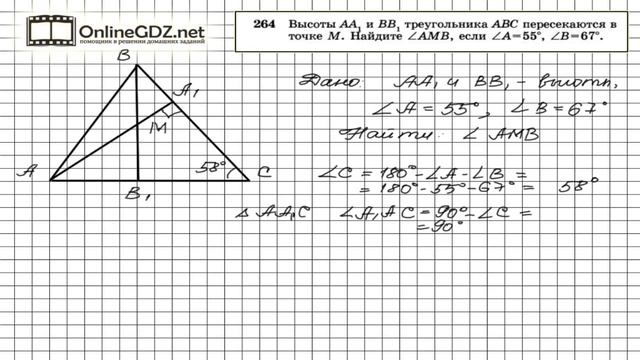 OnlineGDZ.net
помощник в решении домашних заданий
264 Высоты AA₁ и BB₁ треугольника ABC пересекаются в
точке M. Найдите ∠AMB, если ∠A=55°, ∠B=67°.
B
A₁
M
A
58°
C
B₁
Дано: AA₁ и BB₁ - высоты,
∠A = 55°, ∠B = 67°
Найти: ∠AMB
∠C = 180° - ∠A - ∠B =
= 180° - 55° - 67° = 58°
△ AA₁C ∠A₁AC = 90° - ∠C =
= 90°